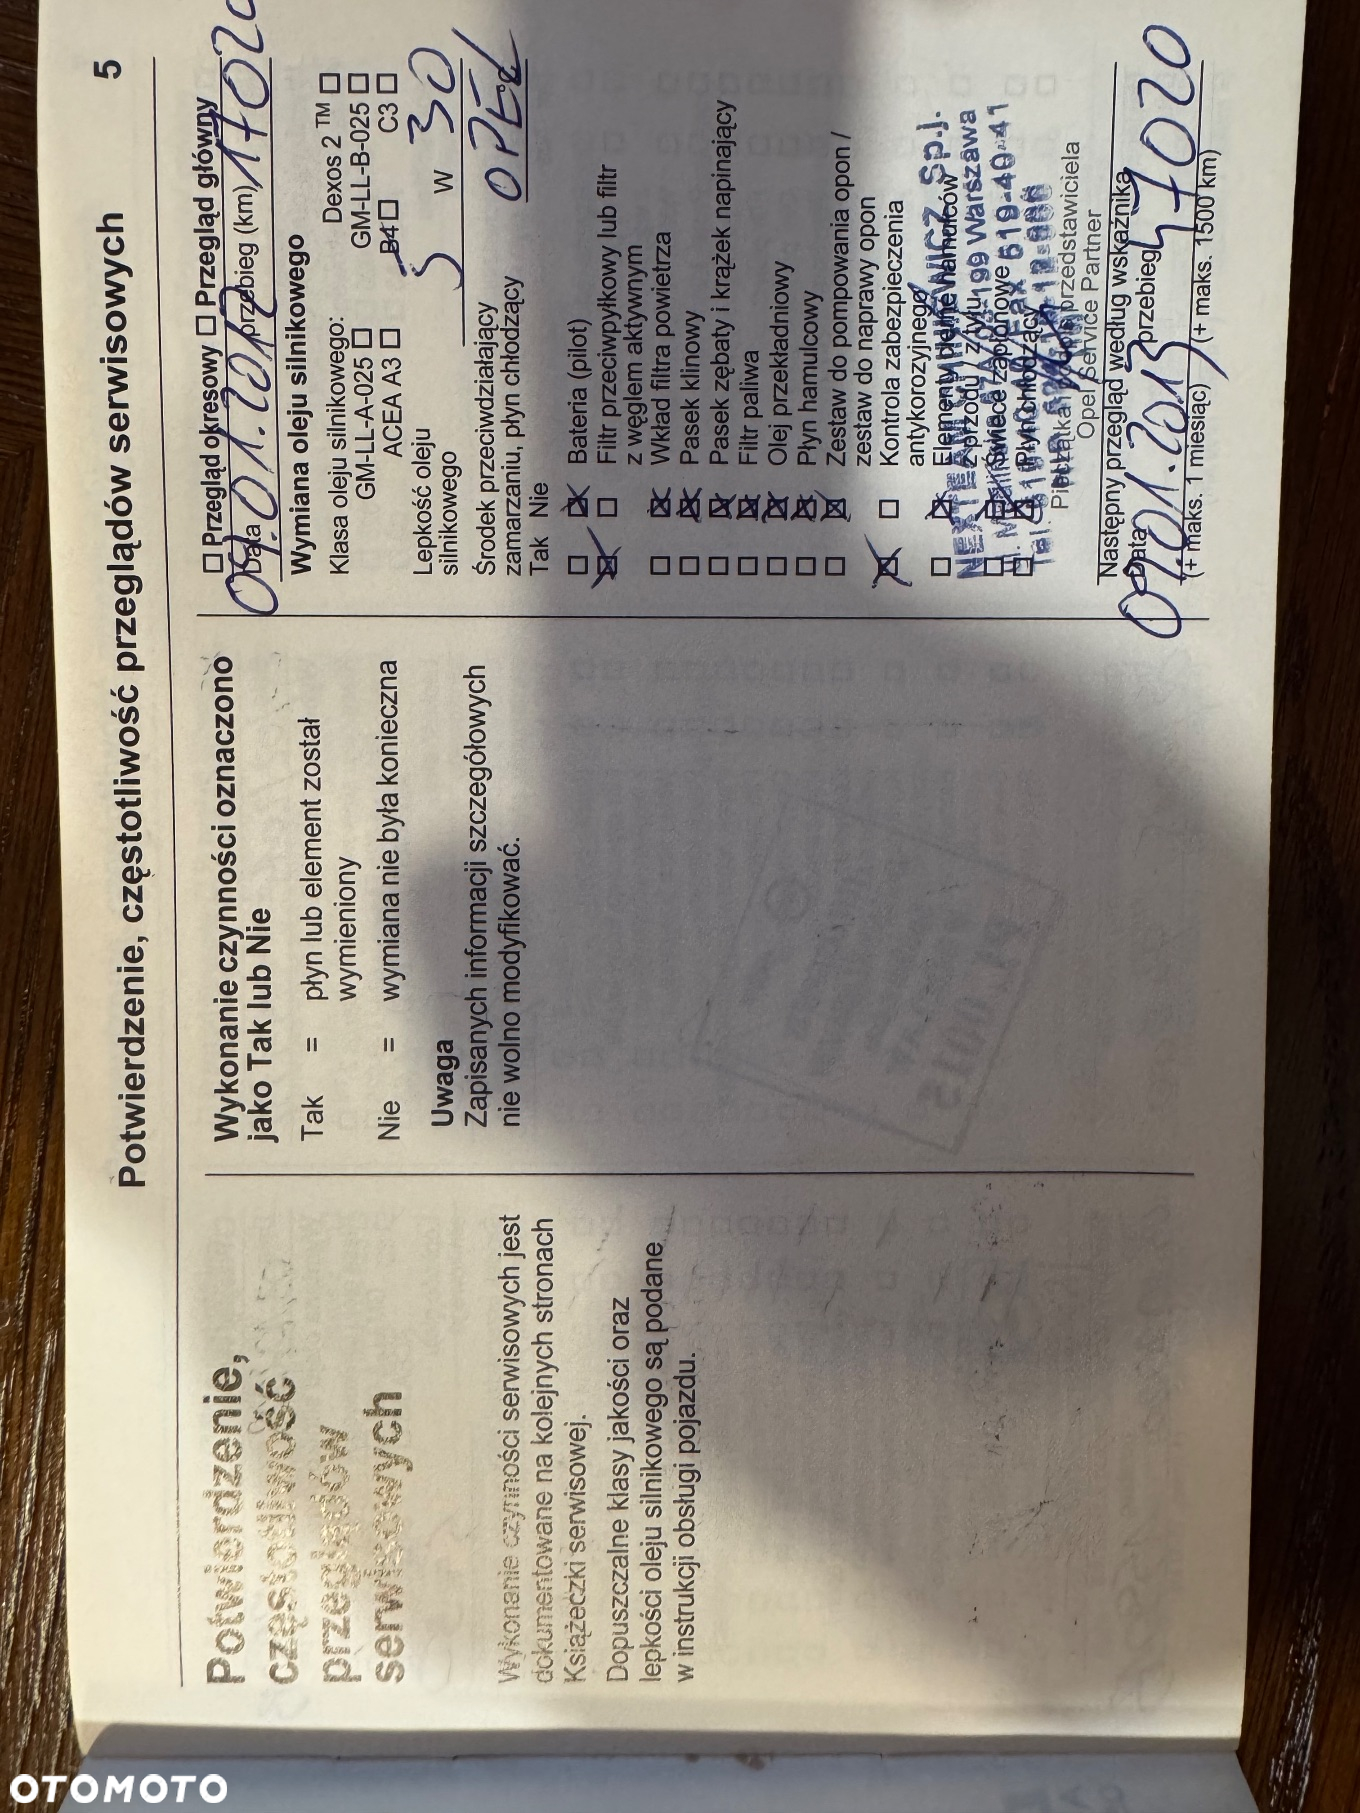 Potwierdzenie, częstotliwość przeglądów serwisowych 5
Potwierdzenie,
częstotliwość
przeglądów
serwisowych
Wykonanie czynności serwisowych jest
dokumentowane na kolejnych stronach
Książeczki serwisowej.
Dopuszczalne klasy jakości oraz
lepkości oleju silnikowego są podane
w instrukcji obsługi pojazdu.
Wykonanie czynności oznaczono
jako Tak lub Nie
Tak = płyn lub element został
wymieniony
Nie = wymiana nie była konieczna
Uwaga
Zapisanych informacji szczegółowych
nie wolno modyfikować.
□ Przegląd okresowy □ Przegląd główny
Data 09.01.2012 przebieg (km) 17020
Wymiana oleju silnikowego
Klasa oleju silnikowego: Dexos 2 ™ □
GM-LL-A-025 □ GM-LL-B-025 □
ACEA A3 □ B4 □ C3 □
Lepkość oleju
silnikowego 5 W 30
Środek przeciwdziałający
zamarzaniu, płyn chłodzący OPEL
Tak Nie
□ ☒ Bateria (pilot)
☒ □ Filtr przeciwpyłkowy lub filtr
z węglem aktywnym
□ ☒ Wkład filtra powietrza
□ ☒ Pasek klinowy
□ ☒ Pasek zębaty i krążek napinający
□ ☒ Filtr paliwa
□ ☒ Olej przekładniowy
□ ☒ Płyn hamulcowy
□ ☒ Zestaw do pompowania opon /
zestaw do naprawy opon
☒ □ Kontrola zabezpieczenia
antykorozyjnego
□ ☒ Elementy cierne hamulców
z przodu / z tyłu
□ ☒ Świece zapłonowe
□ ☒ Płyn chłodzący
NEXTEAM Sp.j.
Warszawa
Pieczątka i podpis przedstawiciela
Opel Service Partner
Następny przegląd według wskaźnika
Data 09.01.2013 przebieg 47020
(+ maks. 1 miesiąc) (+ maks. 1500 km)
OTOMOTO